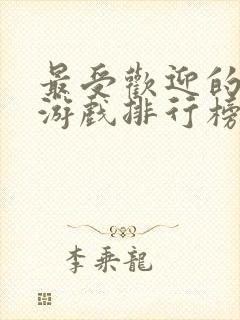 最受歡迎的
游戲排行榜
李乘龍